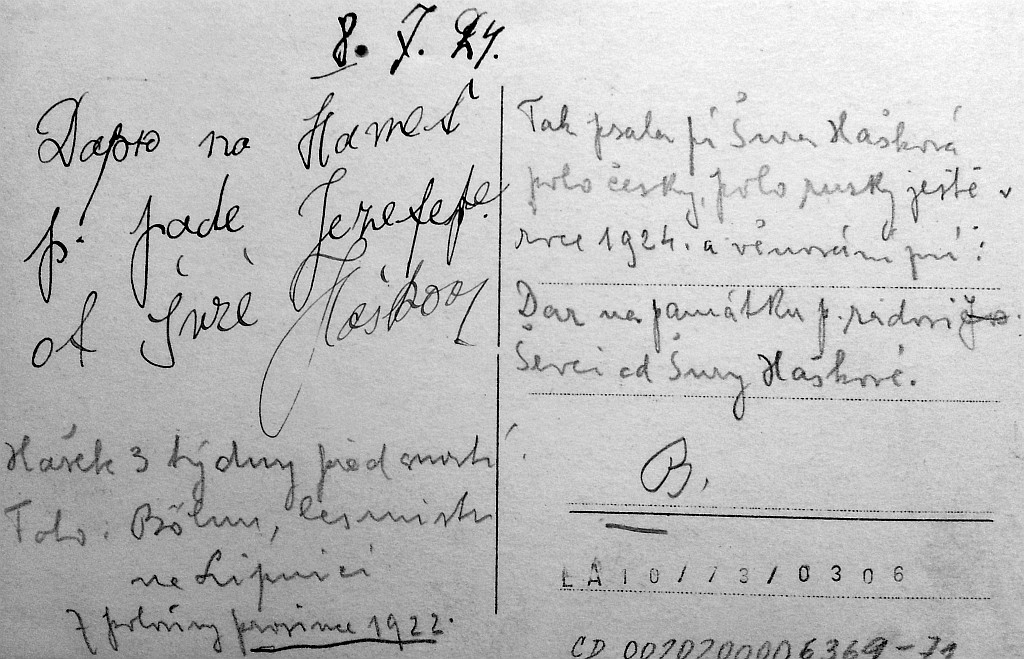 8. X. 24.
Dapю na Hameť
p. pade Jezefefe.
ot Šuré Háškooy
Hašek 3 týdny před smrtí.
Foto: Böhm, lesmistr
na Lipnici
z poloviny prosince 1922.
Tak psala pí Šura Hašková
polo česky, polo rusky ještě v
roce 1924. a věnování zní:
Dar na památku p. radovi
Ševci od Šury Haškové.
B.
LA 10/73/0306
CD 0020200006369-71